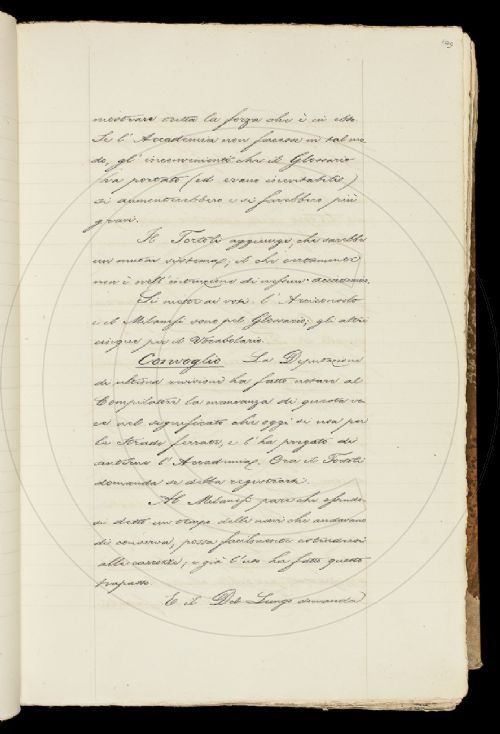 179
mostrare tutta la forza che è in esso.
Se l'Accademia non facesse in tal mo-
do, gl'inconvenienti che il Glossario
ha portato (ed erano inevitabili)
si aumenterebbero e si farebbero più
gravi.
Il Tortoli aggiunge, che sarebbe
un mutar sistema, il che certamente
non è nell'intenzione di nessun accademico.
Si mette ai voti. l'Arciconsolo
e il Milanesi sono pel Glossario; gli altri
cinque per il Vocabolario.
Convoglio La Deputazione
di ultima revisione ha fatto notare al
Compilatore la mancanza di questa vo-
ce nel significato che oggi si usa per
le Strade ferrate, e l'ha pregato di
sentirne l'Accademia. Ora il Tortoli
domanda se debba registrarsi.
Al Milanesi pare che essendo-
si detto un tempo delle navi che andavano
di conserva, possa facilmente estendersi
alle carrozze; e già l'uso ha fatto questo
trapasso.
E il Del Lungo domanda